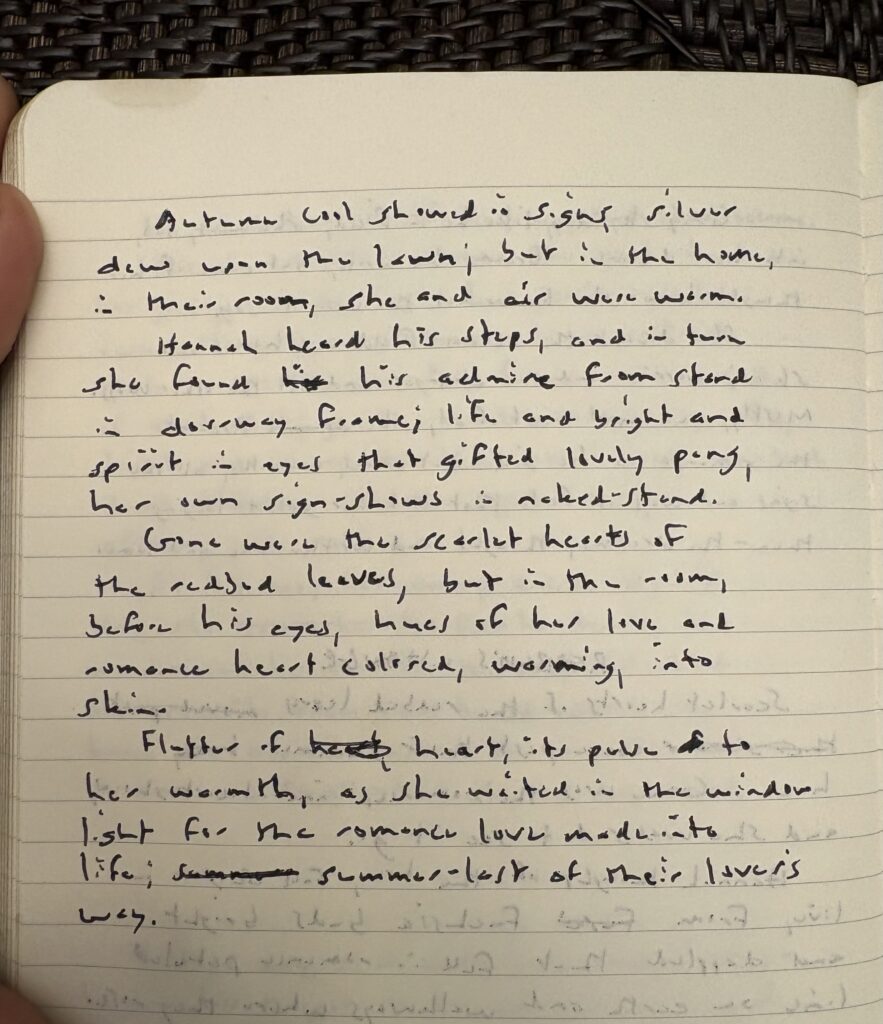 Autumn cool showed in signs, silver
dew upon the lawn; but in the home,
in their room, she and air were warm.
Hannah heard his steps, and in turn
she found his admire from stand
in doorway frame; life and bright and
spirit in eyes that gifted lovely pang,
her own sign-shows in naked-stand.
Gone were the scarlet hearts of
the redbud leaves, but in the room,
before his eyes, hues of her love and
romance heart colored, warming, into
skin.
Flutter of heart, its pulse to
her warmth, as she waited in the window
light for the romance love made into
life; summer-last of their lover's
way.